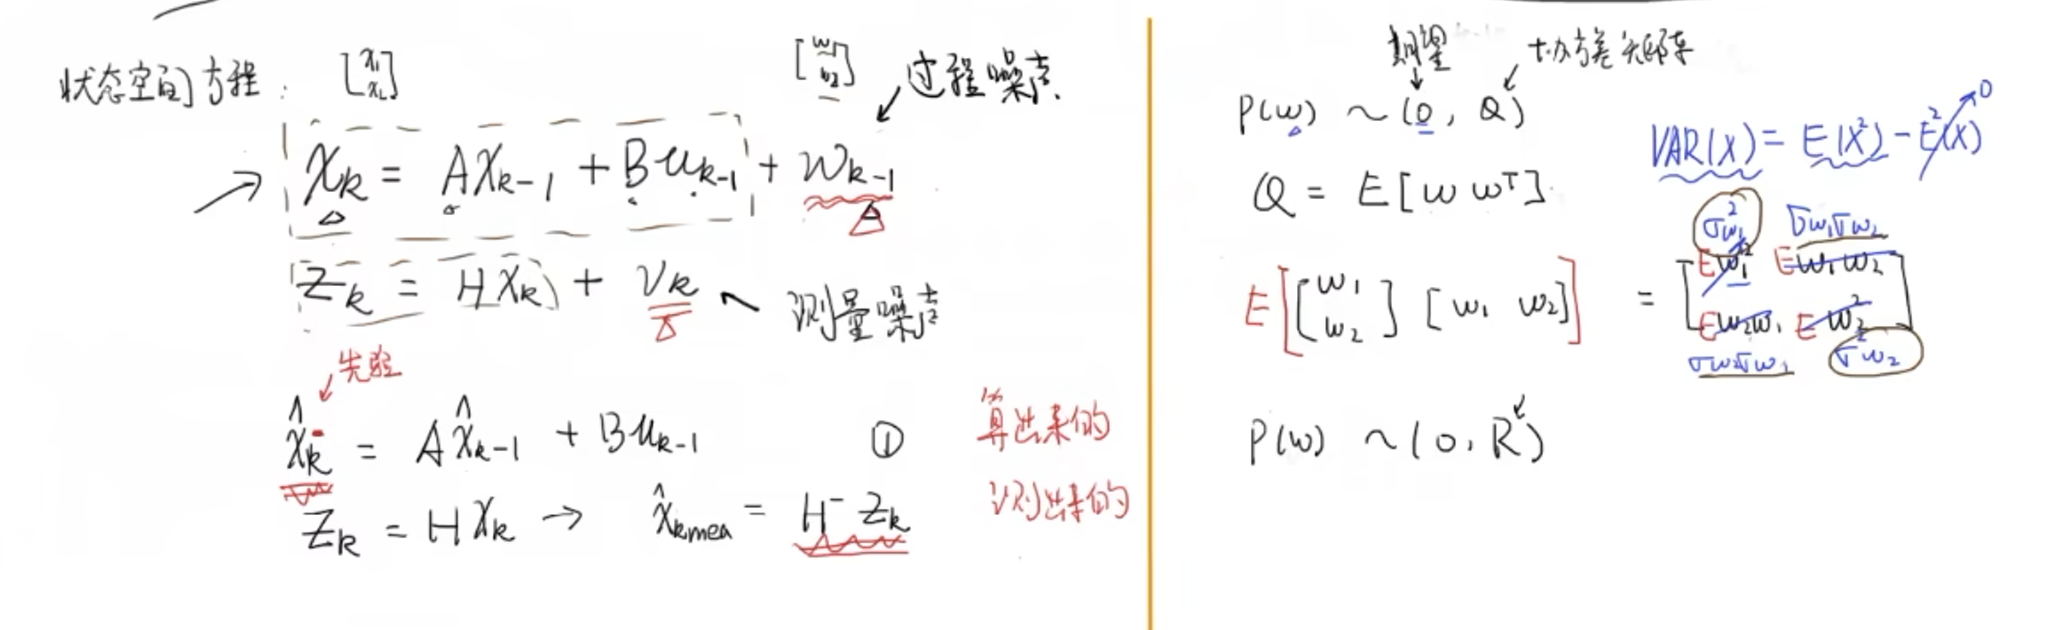 状态空间方程: [x₁ x₂] [w₁ w₂] 过程噪声
X_k = A X_{k-1} + B u_{k-1} + w_{k-1}
Z_k = H X_k + V_k 测量噪声
先验
x̂_k⁻ = A x̂_{k-1} + B u_{k-1} ① 算出来的
Z_k = H X_k → x̂_{kmea} = H⁻ Z_k 测出来的
期望 协方差矩阵
P(w) ~ (0, Q)
VAR(X) = E(X²) - E²(X) 0
Q = E[w wᵀ]
σ²w₁ σw₁σw₂
E[[w₁ w₂] [w₁ w₂]] = [Ew₁² Ew₁w₂
Ew₂w₁ Ew₂²]
σw₂σw₁ σ²w₂
P(w) ~ (0, R)